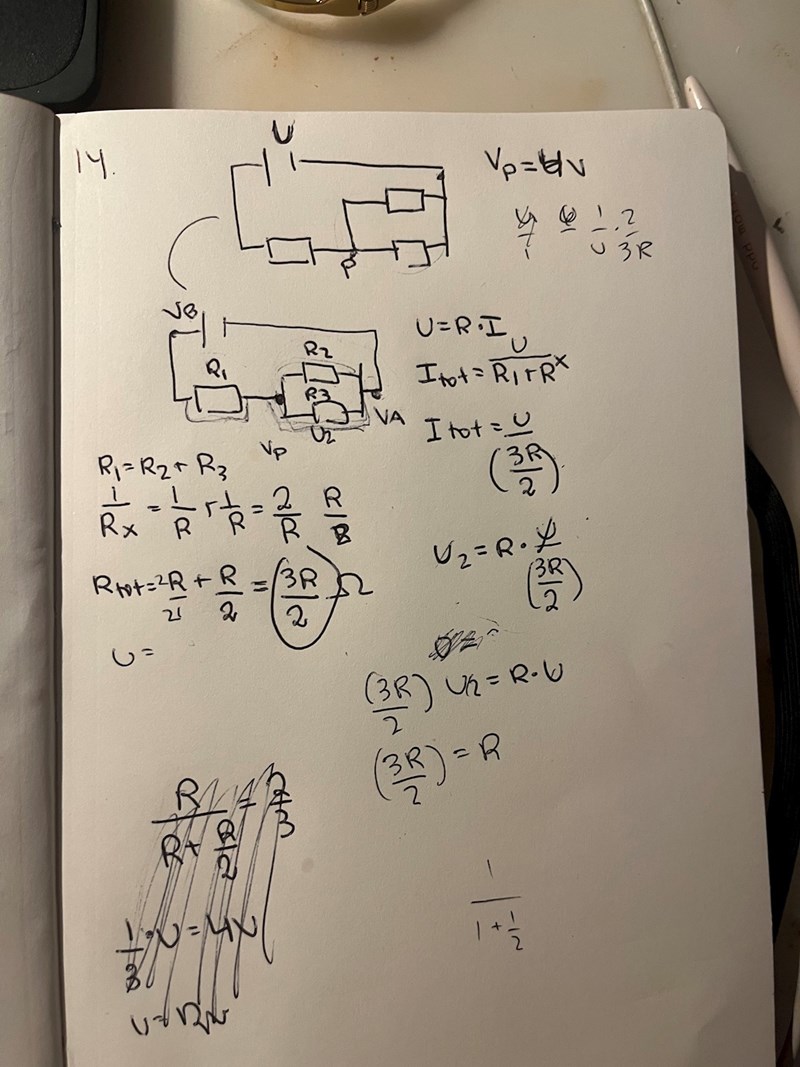 14.
U
Vp = 4V
P
1/U · 2/3R
VB
R1
R2
R3
U2
Vp
VA
U = R · I
Itot = U/(R1 + Rx)
Itot = U/(3R/2)
R1 = R2 + R3
1/Rx = 1/R + 1/R = 2/R R/2
Rtot = 2R/21 + R/2 = (3R/2) Ω
U2 = R · U/(3R/2)
U =
(3R/2) U2 = R · U
(3R/2) = R
R/(R + R/2) = 2/3
1/3 · U = 4
U = 12
1/(1 + 1/2)